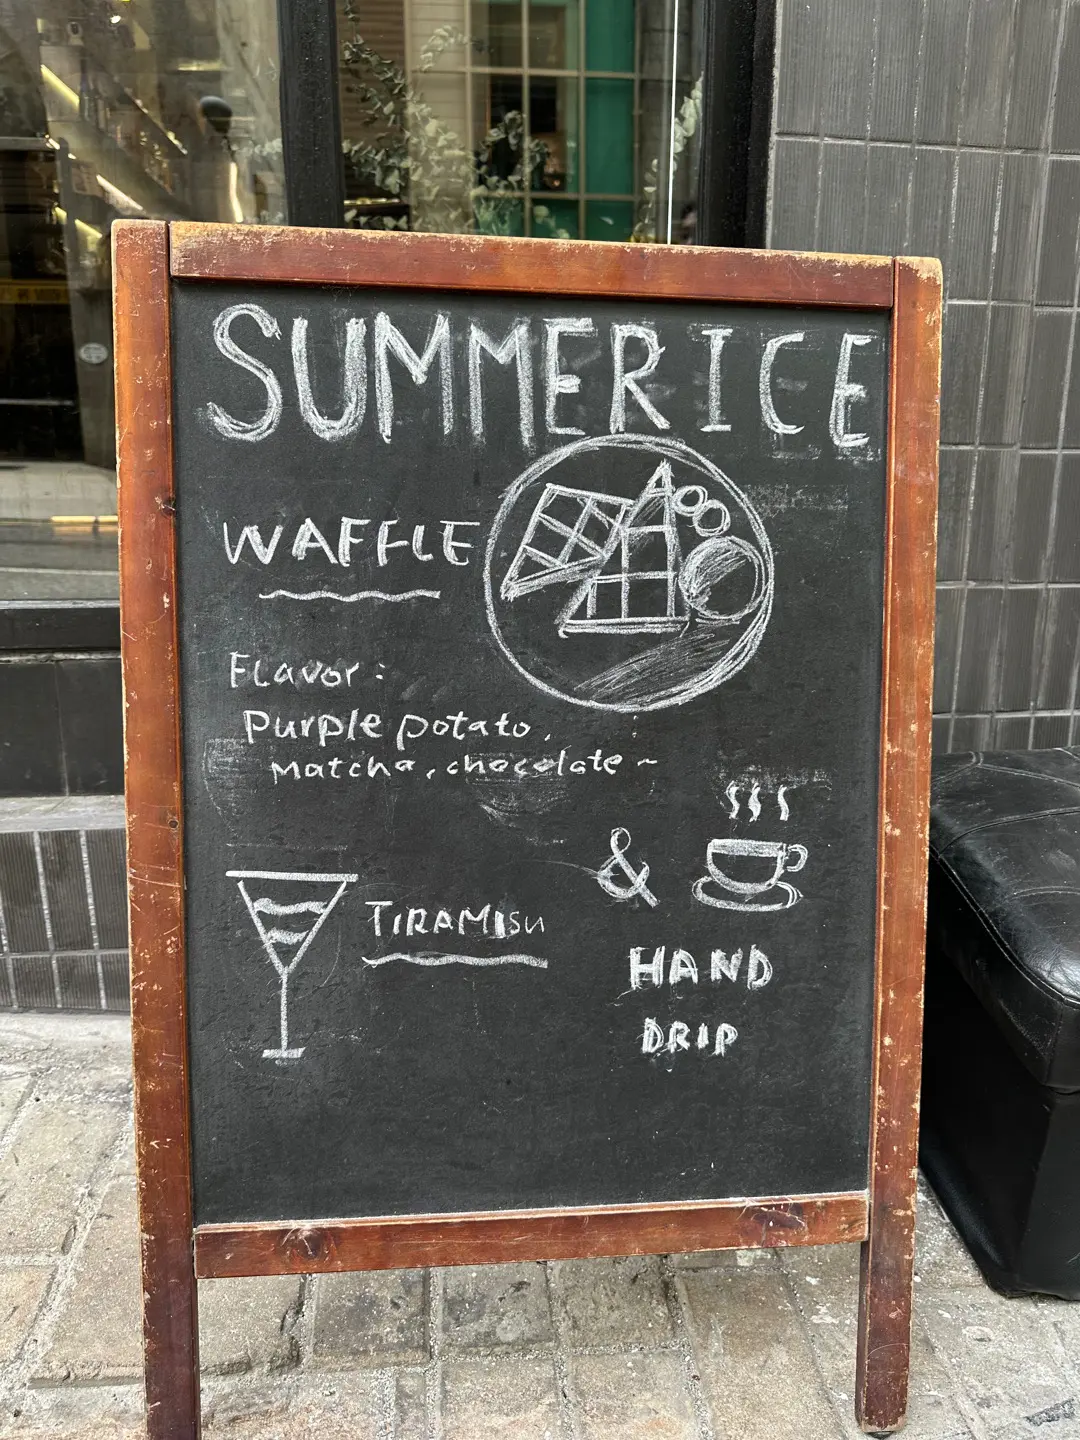 SUMMER ICE
WAFFLE
Flavor:
Purple potato,
Matcha, chocolate ~
TIRAMISU
&
HAND
DRIP